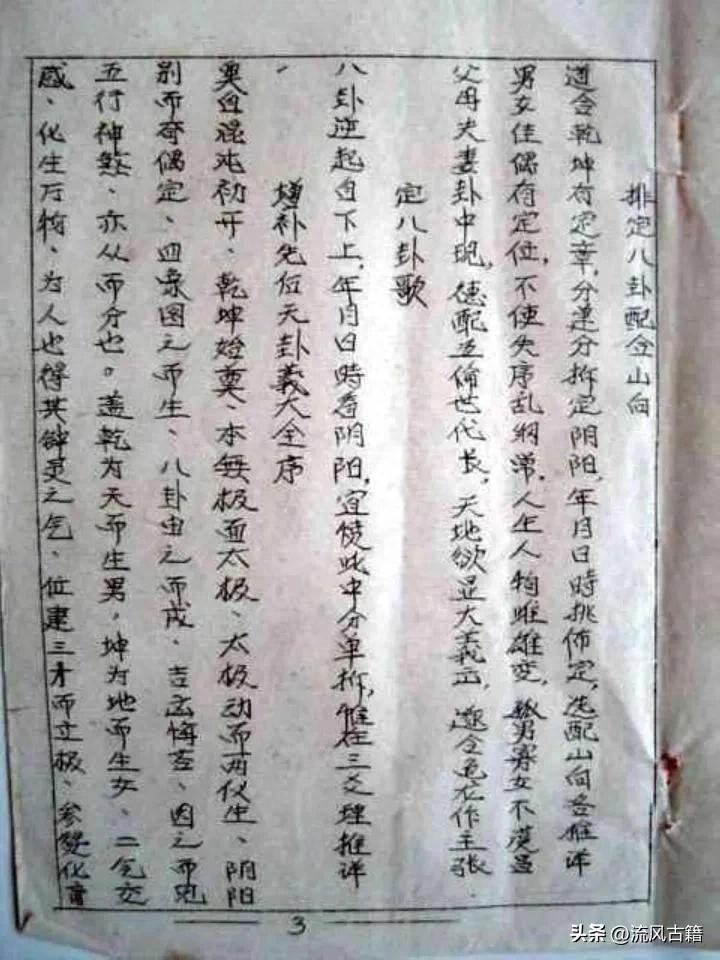 排定八卦配合山向
道合乾坤有定章，分逆分排定阴阳，年月日時挑佈定，选配山向各推详
男女佳偶有定位，不使失序乱纲常，人生人物雌雄变，男寡女不
父母夫妻卦中现，德配五倫世代长，天地欲显大義正，作主张．
定八卦歌
八卦逆起自下上，年月日時看阴阳，宜使此中分单排，惟在三爻理推详
增补先后天卦義大全序
奥自混沌初开、乾坤始奠、本無极而太极、太极动而两仪生、阴阳
别而奇偶定、四象因之而生、八卦由之而成、吉凶悔吝、因之而现
五行神煞、亦从而分也。盖乾为天而生男，坤为地而生女、二气交
感、化生万物、为人也得其钟灵之气、位建三才而立极、参赞化育
3
头条 @流风古籍